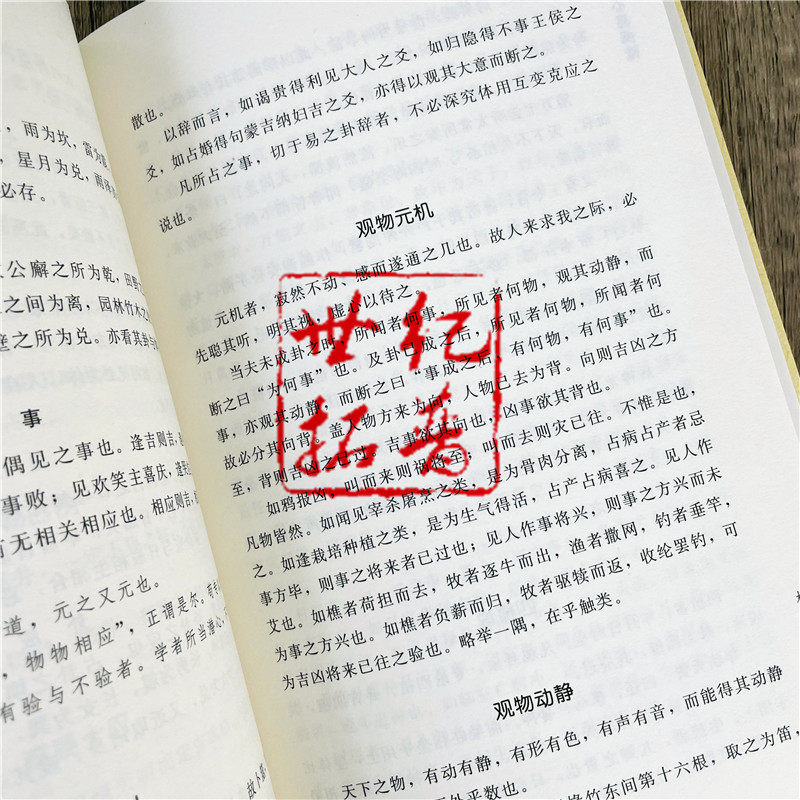 ，雨为坎，雷为震
，星月为兑，雨泽
必存。
公廨之所为乾，田野
之间为离，园林竹木之
之所为兑。亦看其美与
事
偶见之事也。逢吉则吉，
事败；见欢笑主喜庆，逢
有无相关相应也。相应则吉，
道，元之又元也。
，物物相应”，正谓是尔。
有验与不验者。学者所当潜心
散也。
以辞而言，如谒贵得利见大人之爻，如归隐得不事王侯之
爻，如占婚得句蒙吉纳妇吉之爻，亦得以观其大意而断之。
凡所占之事，切于易之卦辞者，不必深究体用互变克应之
说也。
观物元机
元机者，寂然不动、感而遂通之几也。故人来求我之际，必
先聪其听，明其视，虚心以待之。
当夫未成卦之时，所闻者何事，所见者何物，观其动静，而
断之曰“为何事”也。及卦已成之后，所见者何物，所闻者何
事，亦观其动静，而断之曰“事成之后，有何物，有何事”也。
故必分其向背。盖人物方来为向，人物已去为背。向则吉凶之方
至，背则吉凶之已过。吉事欲其向也，凶事欲其背也。
如鸦报凶，叫而来则祸将至；叫而去则灾已往。不惟是也，
凡物皆然。如闻见宰杀屠烹之类，是为骨肉分离，占病占产者忌
之。如逢栽培种植之类，是为生气得活，占产占病喜之。见人作
事方毕，则事之将来者已过也；见人作事将兴，则事之方兴而未
艾也。如樵者荷担而去，牧者逐牛而出，渔者撒网，钓者垂竿，
为事之方兴也。如樵者负薪而归，牧者驱犊而返，收纶罢钓，可
为吉凶将来已往之验也。略举一隅，在乎触类。
观物动静
天下之物，有动有静，有形有色，有声有音，而能得其动静
外乎数也。
竹东间第十六根，取之为笛，
世纪
拓普